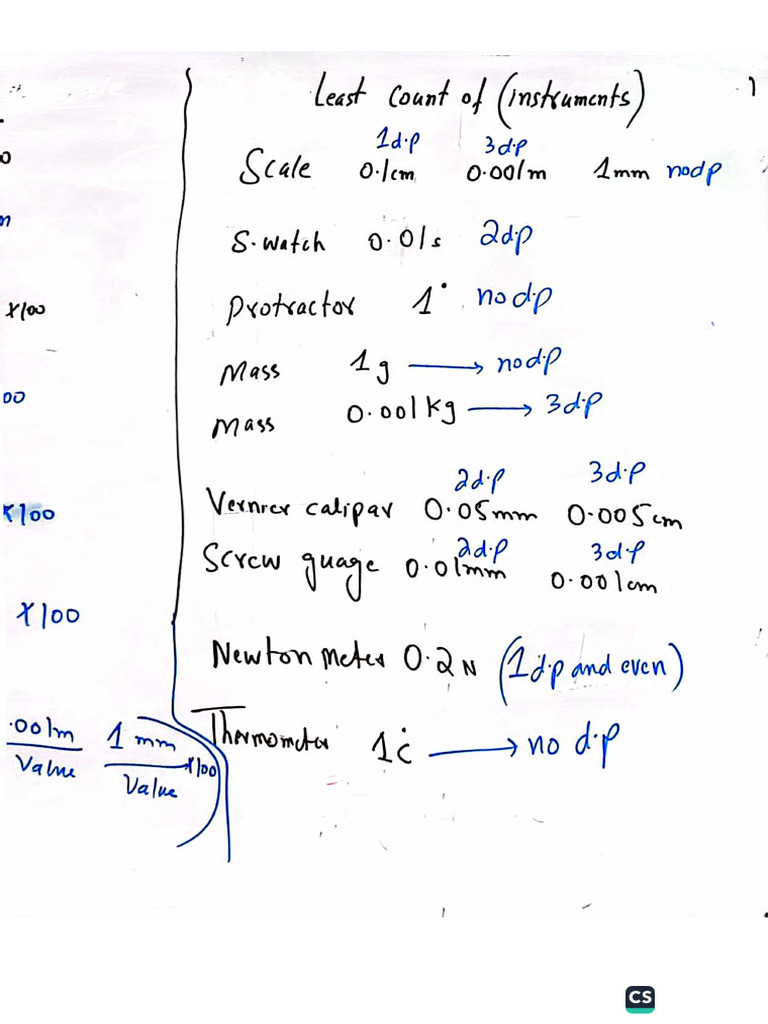 Least Count of (instruments)
1d.p 3d.p
Scale 0.1cm 0.001m 1mm nodp
S.watch 0.01s 2dp
protractor 1° no d.p
Mass 1g → no d.p
Mass 0.001kg → 3d.p
2d.p 3d.p
Vernier calipar 0.05mm 0.005cm
2d.p 3d.p
Screw guage 0.01mm 0.001cm
Newton meter 0.2N (1d.p and even)
Thermometer 1°c → no d.p
x100
00
x100
x100
.001m 1 mm
Value Value x100
CS